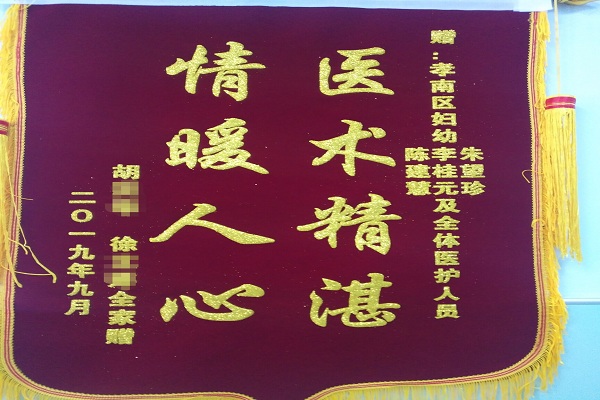 赠：孝南区妇幼
朱望珍
李桂元
陈建慧
及全体医护人员
医术精湛
情暖人心
胡 徐 全家赠
二〇一九年九月